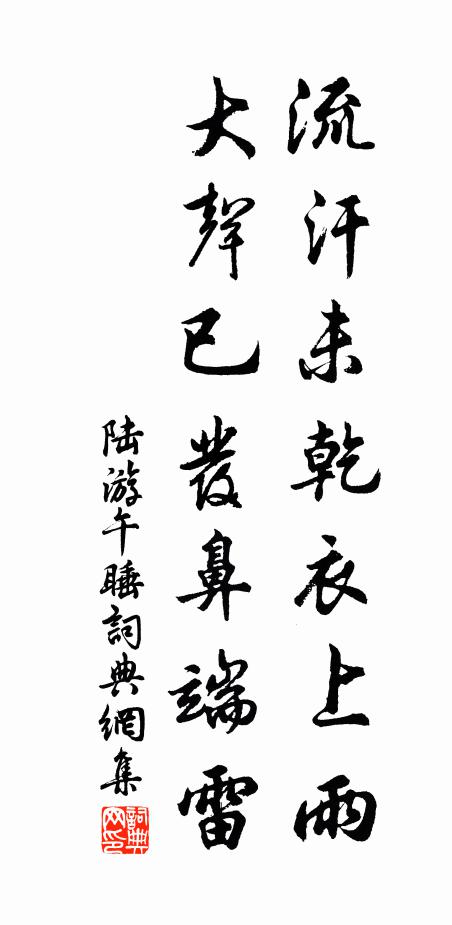 流汗未乾衣上雨
大聲已發鼻端雷
陆游午睡詞典網集
詞典网印